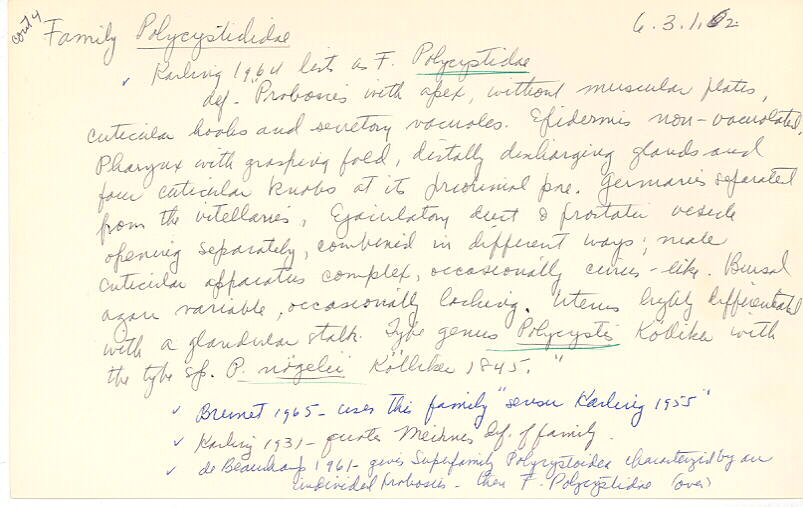 cont'd Family Polycystididae 6.3.1.2.
✓ Karling 1964 lists as F. Polycystidae
def. "Proboscis with apex, without muscular plates,
cuticular hooks and secretory vacuoles. Epidermis non-vacuolated,
Pharynx with grasping fold, distally discharging glands and
four cuticular knobs at its proximal pore. Germaries separated
from the vitellaries, Ejaculatory duct & prostatic vesicle
opening separately, combined in different ways; male
cuticular apparatus complex, occasionally cirrus-like. Bursal
organ variable, occasionally lacking. Uterus highly differentiated
with a glandular stalk. Type genus Polycystis Kölliker with
the type sp. P. nägelii Kölliker 1845."
✓ Brunet 1965 - uses this family "sensu Karling 1955"
✓ Karling 1931 - quotes Meixner's def. of family.
✓ de Beauchamp 1961 - gives Superfamily Polycystoidea characterized by an
undivided proboscis - then F. Polycystidae (over)